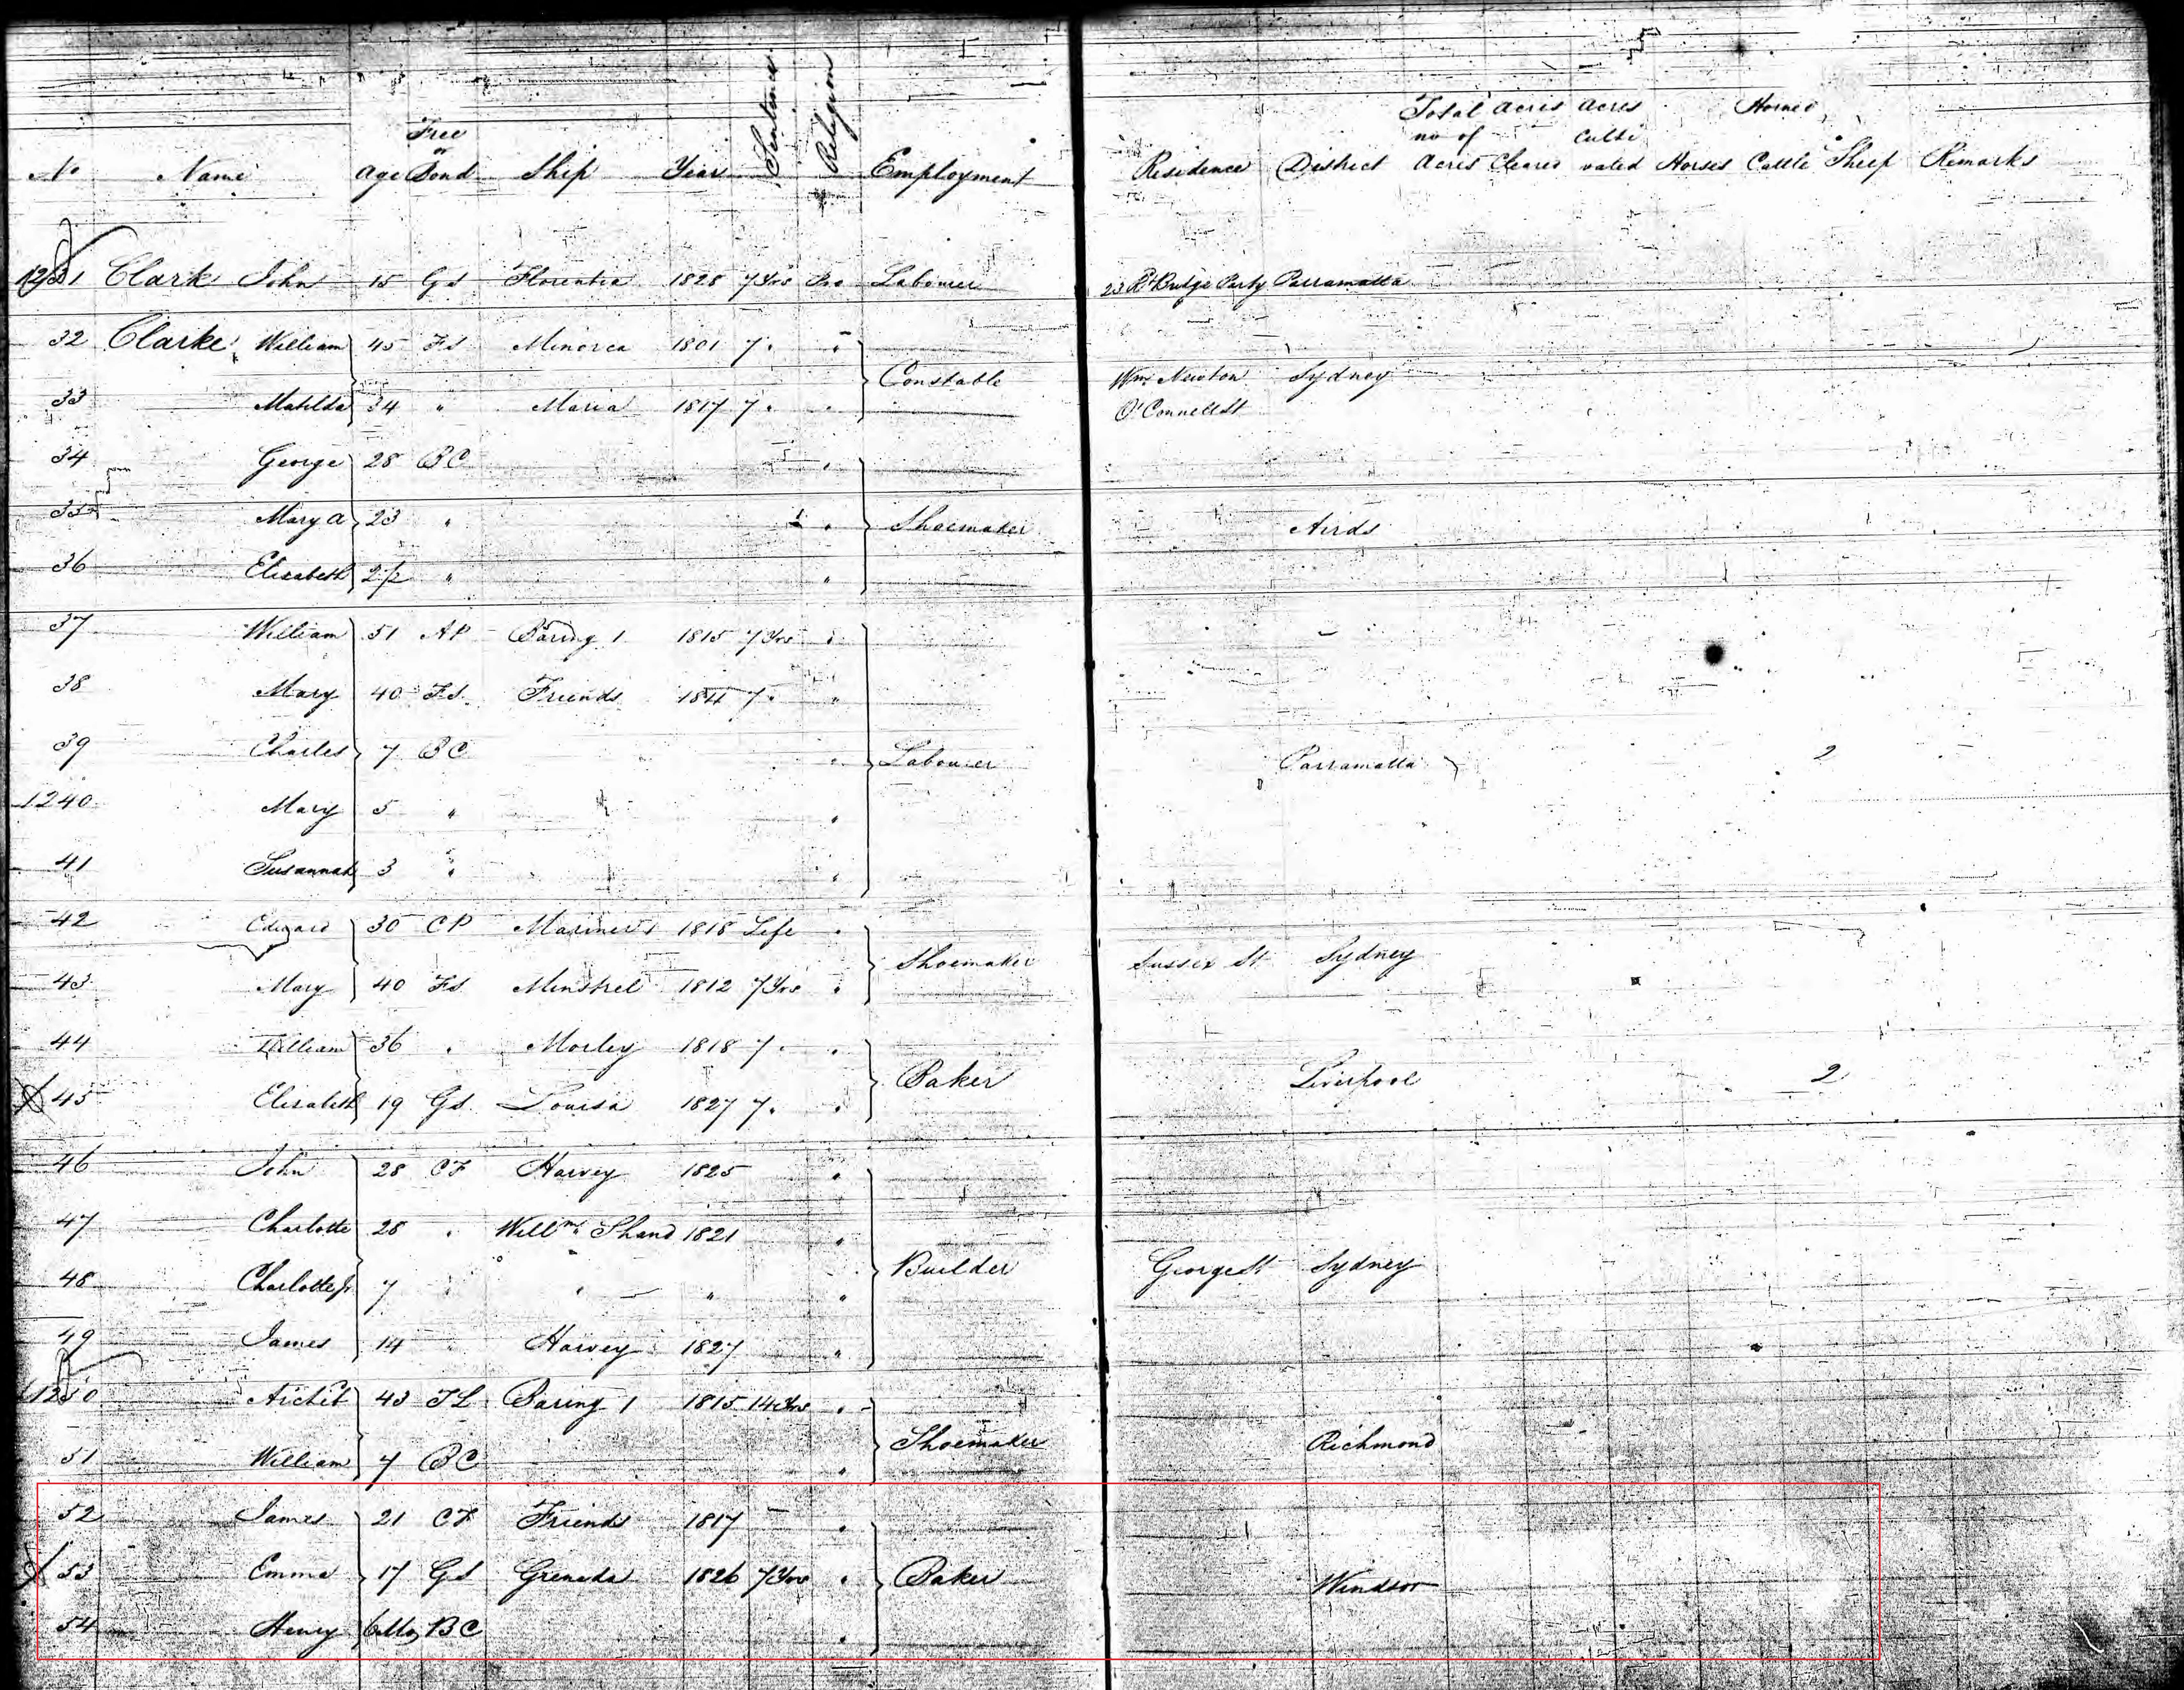 No Name Age Free or Bond Ship Year Sentence Religion Employment Residence District Total no of Acres acres Cleared acres Culti vated Horses Horned Cattle Sheep Remarks
1231 Clark John 15 GS Florentia 1828 7 Yrs Pro Labourer 23 Rd Bridge Party Parramatta
32 Clarke William 45 FS Minorca 1801 7 "
Constable Wm Newton Sydney
33 Matilda 34 " Maria 1817 7 " O'Connell St
34 George 28 BC "
35 Mary A 23 " " Shoemaker Airds
36 Elizabeth 2½ " "
37 William 51 AP Baring 1 1815 7 Yrs "
38 Mary 40 FS Friends 1811 7 "
39 Charles 7 BC " Labourer Parramatta 2
1240 Mary 5 " "
41 Susannah 3 " "
42 Edward 30 CP Mariner 1 1818 Life "
Shoemaker Sussex St Sydney
43 Mary 40 FS Minstrel 1812 7 Yrs "
44 William 36 " Morley 1818 7 "
Baker Liverpool 2
45 Elizabeth 19 GS Louisa 1827 7 "
46 John 28 CF Harvey 1825 "
47 Charlotte 28 " Willm Shand 1821 "
Builder George St Sydney
48 Charlotte Jr 7 " " " "
49 James 14 " Harvey 1827 "
1250 Archib 43 TL Baring 1 1815 14 Yrs "
Shoemaker Richmond
51 William 7 BC "
52 James 21 CF Friends 1817 "
53 Emma 17 GS Grenada 1826 7 Yrs " Baker Windsor
54 Henry 6 Mos BC "